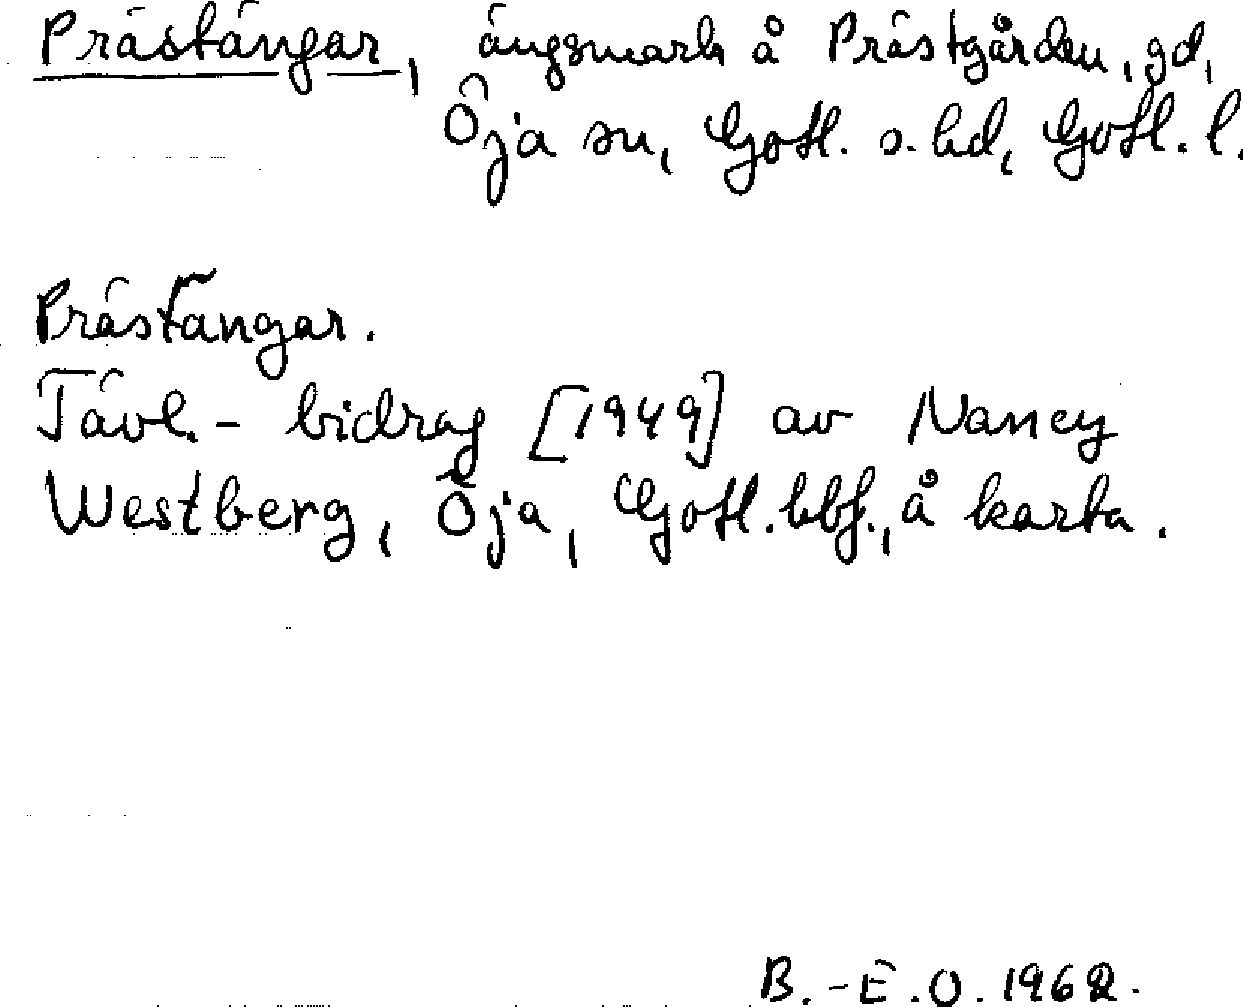 Prästängar, ängsmark å Prästgården, gd,
Öja sn, Gotl. s. hd, Gotl. l.
Prästängar.
Tävl.- bidrag [1949] av Nancy
Westberg, Öja, Gotl. hbf., å karta.
B.-E.O. 1962.